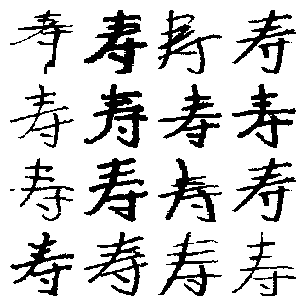 寿寿寿寿
寿寿寿寿
寿寿寿寿
寿寿寿寿